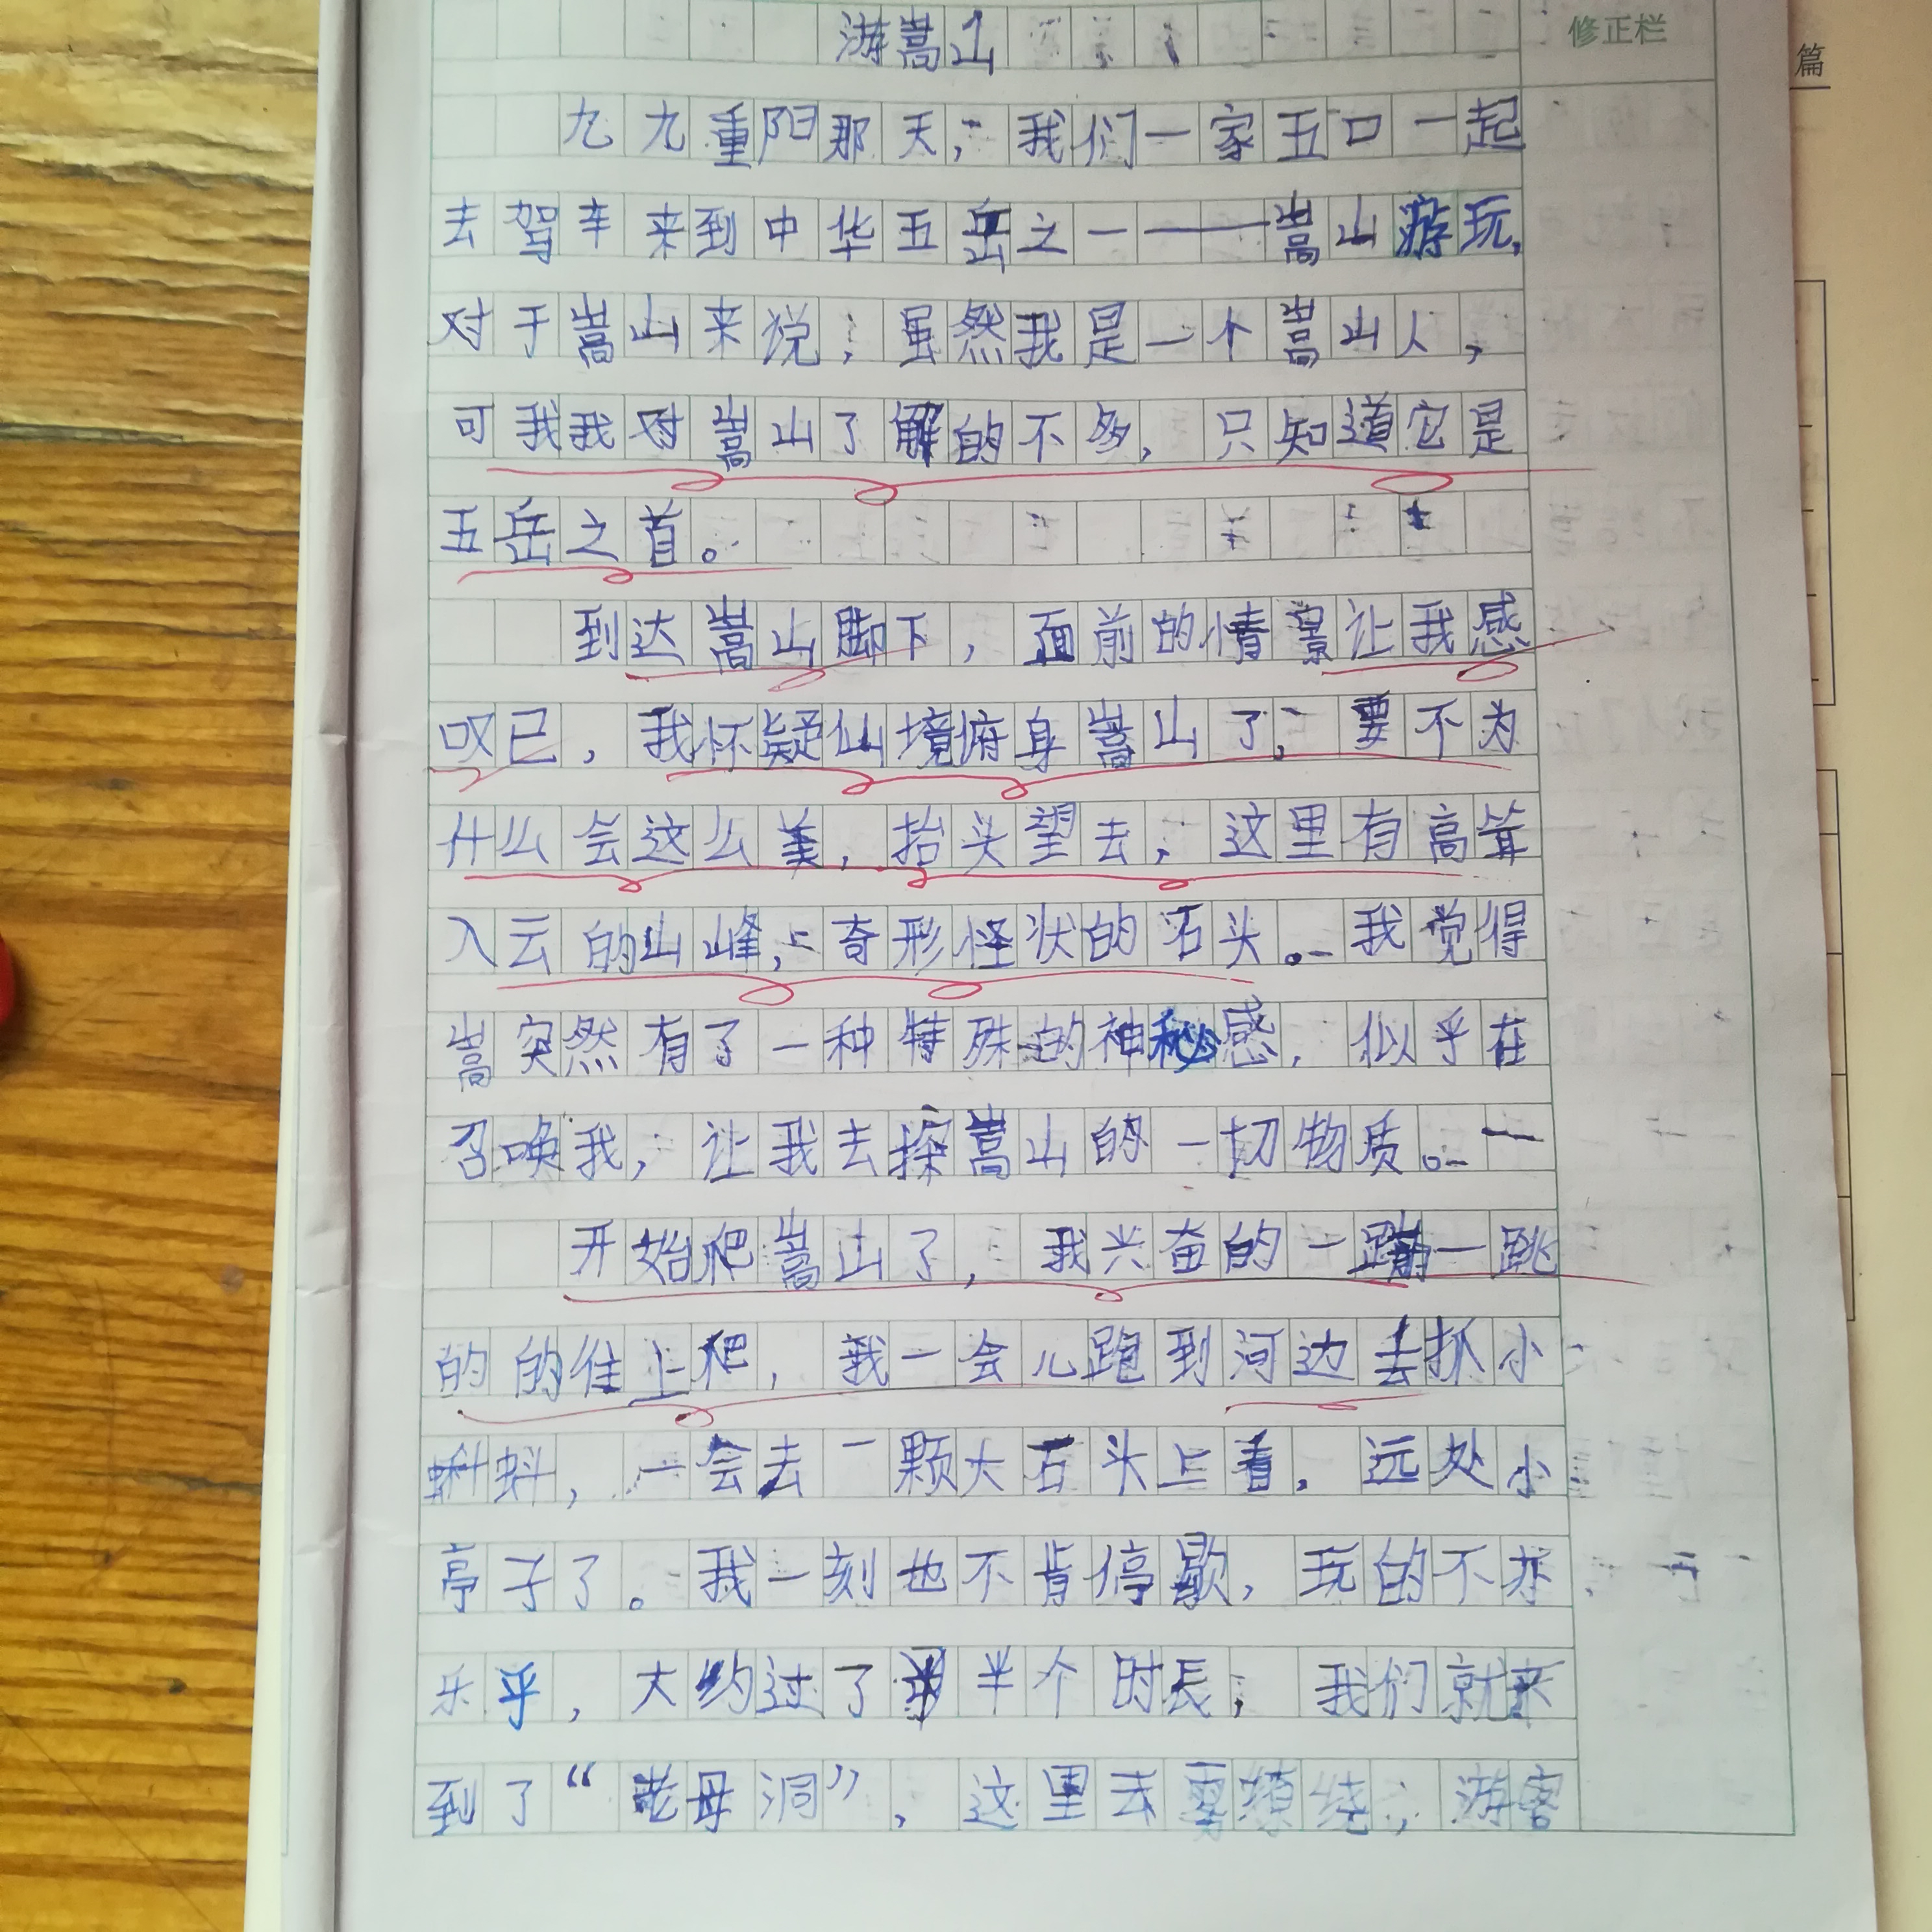 游嵩山
修正栏
篇
九九重阳那天，我们一家五口一起
去驾车来到中华五岳之一——嵩山游玩，
对于嵩山来说，虽然我是一个嵩山人，
可我我对嵩山了解的不多，只知道它是
五岳之首。
到达嵩山脚下，面前的情景让我感
叹已，我怀疑仙境俯身嵩山了，要不为
什么会这么美，抬头望去，这里有高耸
入云的山峰，奇形怪状的石头。我觉得
嵩突然有了一种特殊的神秘感，似乎在
召唤我，让我去探嵩山的一切物质。
开始爬嵩山了，我兴奋的一蹦一跳
的的往上爬，我一会儿跑到河边去抓小
蝌蚪，一会去一颗大石头上看，远处小
亭子了。我一刻也不肯停歇，玩的不亦
乐乎，大约过了半个时长，我们就来
到了“老母洞”，这里去雾缭绕，游客